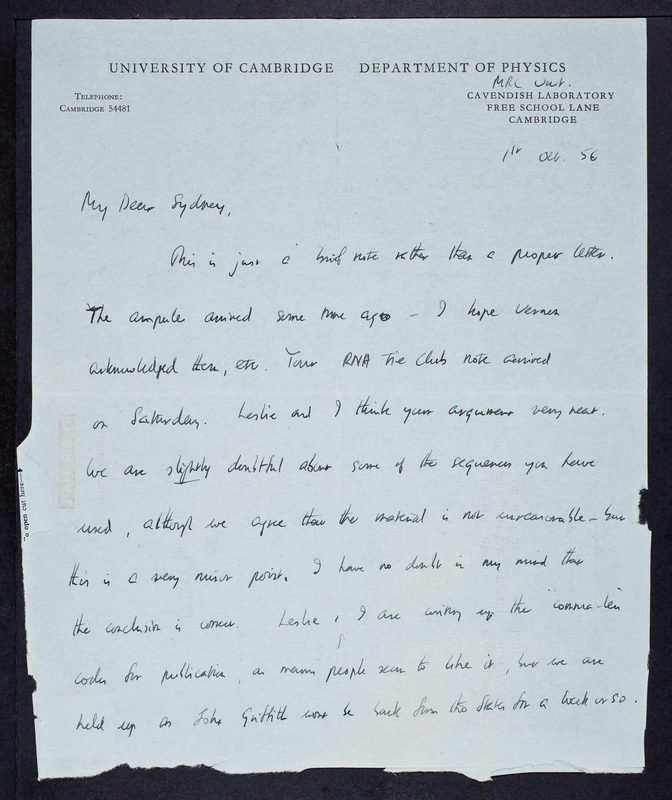 UNIVERSITY OF CAMBRIDGE DEPARTMENT OF PHYSICS
TELEPHONE:
CAMBRIDGE 54481
MRC Unit.
CAVENDISH LABORATORY
FREE SCHOOL LANE
CAMBRIDGE
1st Oct. 56
My Dear Sydney,
This is just a brief note rather than a proper letter.
The ampules arrived some time ago – I hope Vernon
acknowledged them, etc. Your RNA Tie Club note arrived
on Saturday. Leslie and I think your argument very neat.
We are slightly doubtful about some of the sequences you have
used, although we agree that the material is not unreasonable – but
this is a very minor point. I have no doubt in my mind that
the conclusion is correct. Leslie & I are writing up the "comma-less"
codes for publication, as many people seem to like it, but we are
held up as John Griffith wont be back from the States for a week or so.
To open cut here